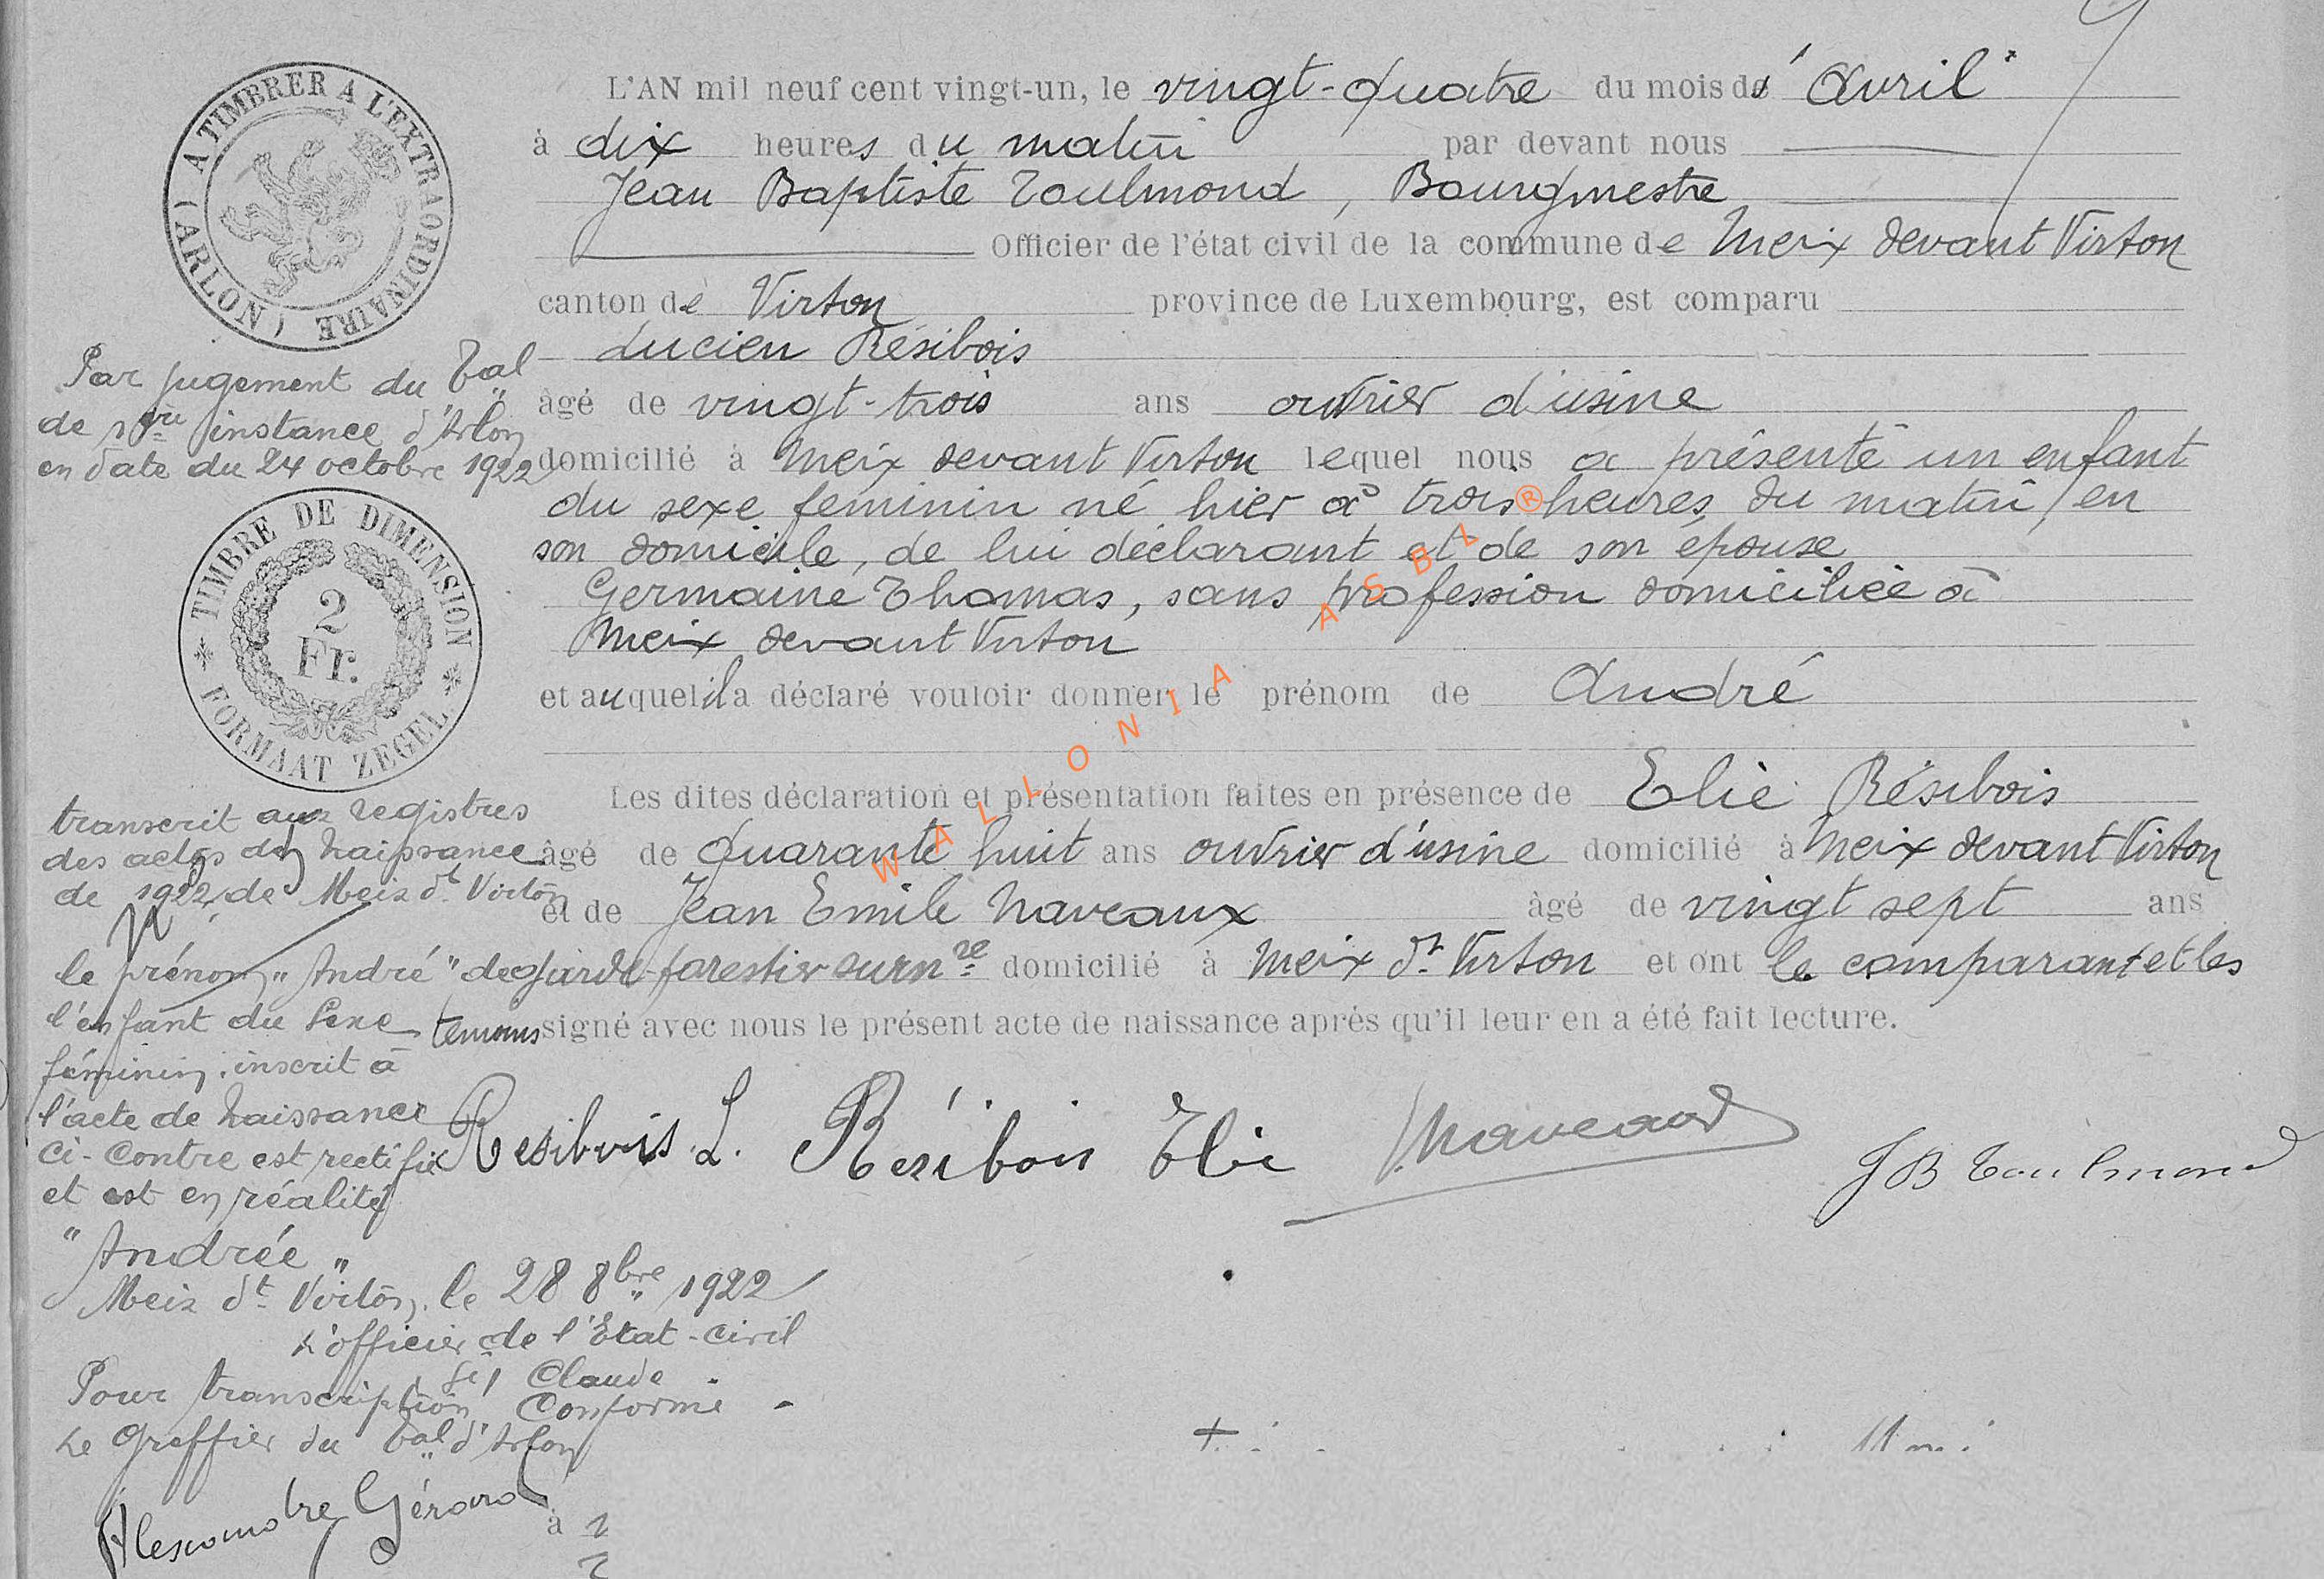 A TIMBRER A L'EXTRAORDINAIRE (ARLON)
L'AN mil neuf cent vingt-un, le vingt-quatre du mois d'Avril
à dix heures du matin par devant nous
Jean Baptiste Toulmond, Bourgmestre
Officier de l'état civil de la commune de Meix devant Virton
canton de Virton province de Luxembourg, est comparu
Lucien Résibois
âgé de vingt-trois ans ouvrier d'usine
domicilié à Meix devant Virton lequel nous a présenté un enfant
du sexe feminin né hier à trois heures du matin, en
son domicile, de lui déclarant et de son épouse
Germaine Thomas, sans profession domiciliée à
Meix devant Virton
et auquel il a déclaré vouloir donner le prénom de André
Les dites déclaration et présentation faites en présence de Elie Résibois
âgé de quarante huit ans ouvrier d'usine domicilié à Meix devant Virton
et de Jean Emile Naveaux âgé de vingt sept ans
garde-forestier surnre domicilié à Meix dt Virton et ont le comparant et les
temoins signé avec nous le présent acte de naissance après qu'il leur en a été fait lecture.
Resibois L. Résibois Elie Naveaux JB Toulmond
Par jugement du Tal
de 1ère instance d'Arlon
en date du 24 octobre 1922
TIMBRE DE DIMENSION
2
Fr.
FORMAAT ZEGEL
transcrit aux registres
des actes de Naissance
de 1922, de Meix dt Virton
le prénom "André" de
l'enfant du sexe
féminin inscrit à
l'acte de Naissance
ci-contre est rectifié
et est en réalité
"Andrée"
Meix dt Virton, le 28 8bre 1922
L'officier de l'Etat-civil
Sé, Claude
Pour transcription Conforme
Le Greffier du Tal d'Arlon
Gérard
à
WALLONIA ASBL ®